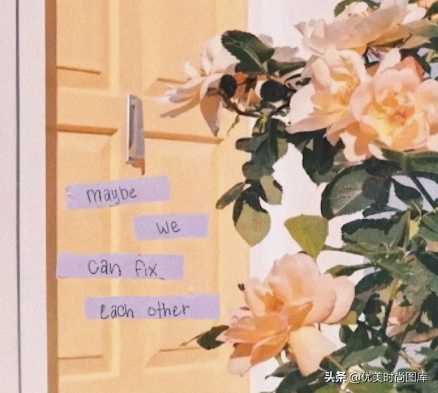 maybe
we
can fix
each other
头条 @优美时尚图库